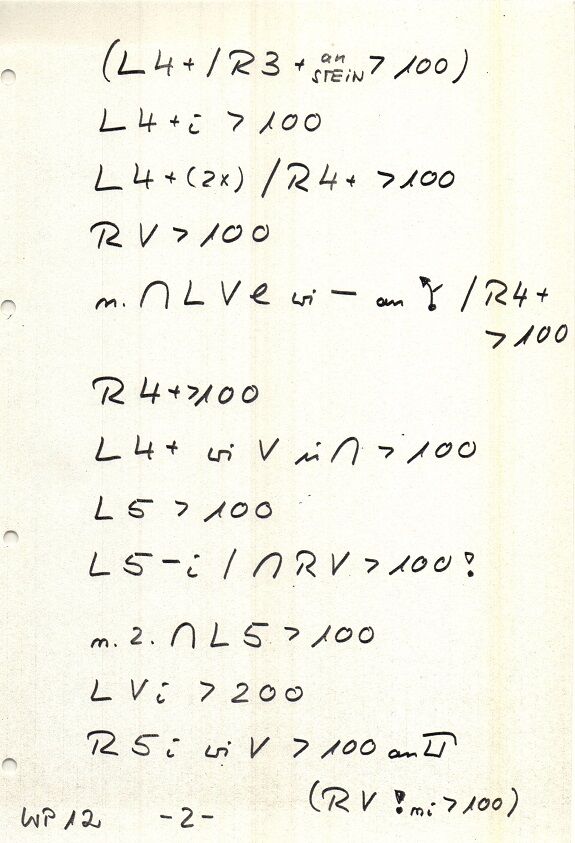 (L4+/R3+ an STEiN > 100)
L4+i > 100
L4+(2x) /R4+ >100
RV > 100
n. ∩ L V e wi — an /R4+
>100
R4+>100
L4+ wi V in ∩ > 100
L5 > 100
L5-i / ∩ RV > 100 !
n. 2. ∩ L5 > 100
L Vi > 200
R5i wi V > 100 an
(RV ! mi > 100)
WP12 -2-